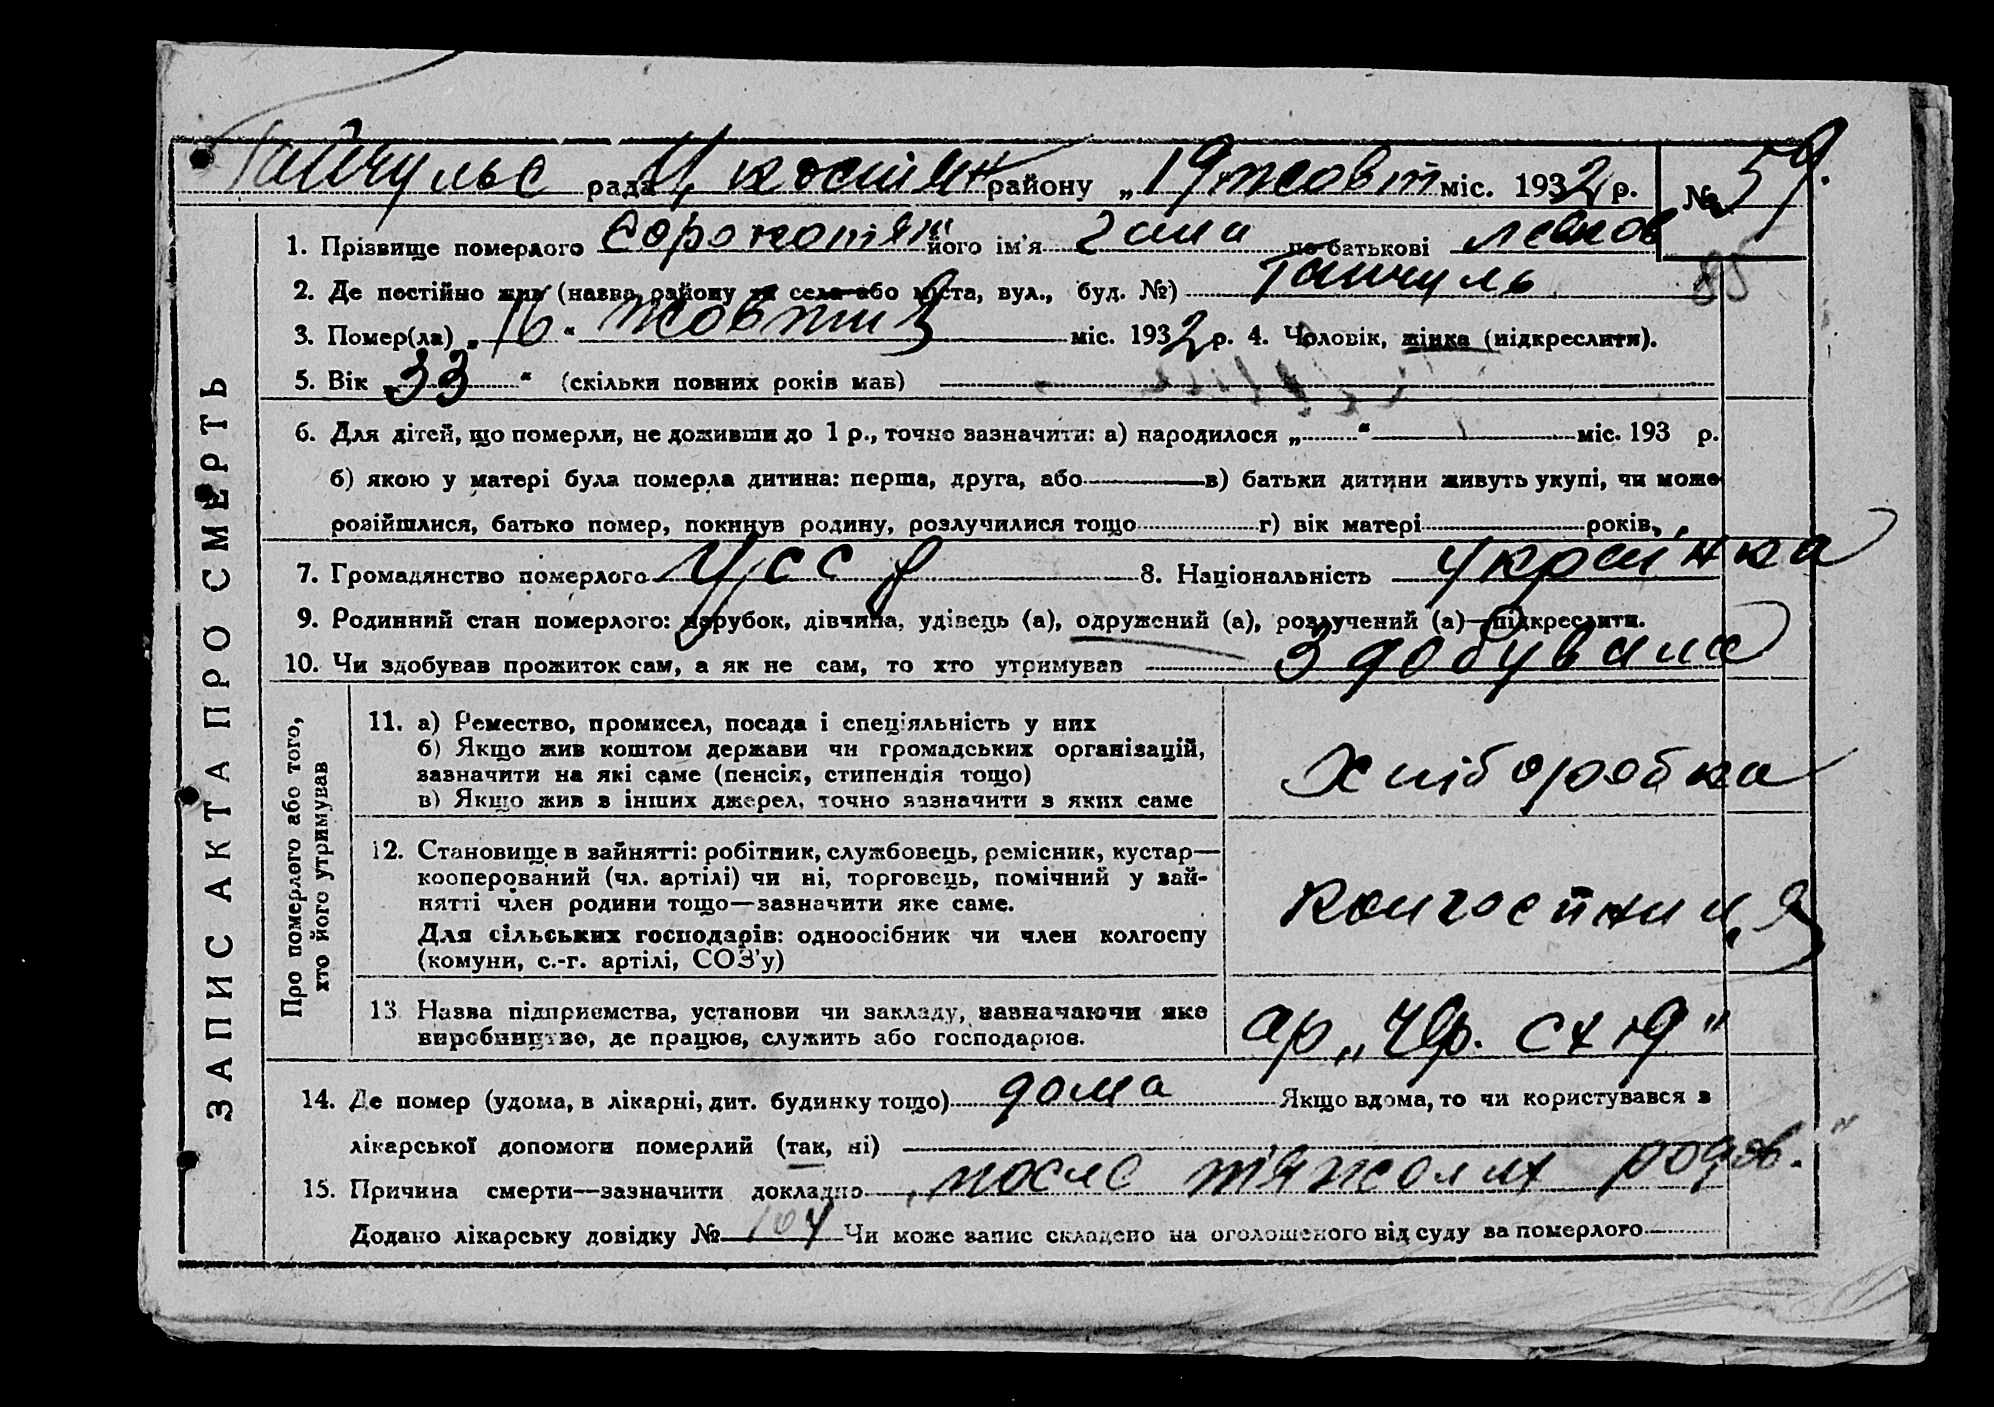 Гайчульс рада Ц костян району „19" жовт міс. 1932 р. № 59.
ЗАПИС АКТА ПРО СМЕРТЬ
1. Прізвище померлого його ім'я Гала по батькові Леонов
2. Де постійно жив (назва району та села або міста, вул., буд. №) Гайчуль 85
3. Помер(ла) „16" жовтня міс. 1932 р. 4. Чоловік, жінка (підкреслити).
5. Вік „33" (скільки повних років мав)
6. Для дітей, що померли, не доживши до 1 р., точно зазначити: а) народилося „ " міс. 193 р.
б) якою у матері була померла дитина: перша, друга, або в) батьки дитини живуть укупі, чи може
розійшлися, батько помер, покинув родину, розлучилися тощо г) вік матері років,
7. Громадянство померлого УССР 8. Національність українка
9. Родинний стан померлого: парубок, дівчина, удівець (а), одружений (а), розлучений (а)—підкреслити.
10. Чи здобував прожиток сам, а як не сам, то хто утримував Здобувала
Про померлого або того,
хто його утримував
11. а) Ремество, промисел, посада і спеціяльність у них
б) Якщо жив коштом держави чи громадських організацій,
зазначити на які саме (пенсія, стипендія тощо)
в) Якщо жив з інших джерел, точно зазначити з яких саме
Хліборобка
12. Становище в зайнятті: робітник, службовець, ремісник, кустар—
кооперований (чл. артілі) чи ні, торговець, помічний у зай-
нятті член родини тощо—зазначити яке саме.
Для сільських господарів: одноосібник чи член колгоспу
(комуни, с.-г. артілі, СОЗ'у)
колгоспниця
13. Назва підприємства, установи чи закладу, зазначаючи яке
виробництво, де працює, служить або господарює.
ар „Чер. схід"
14. Де помер (удома, в лікарні, дит. будинку тощо) дома Якщо вдома, то чи користувався з
лікарської допомоги померлий (так, ні)
15. Причина смерти—зазначити докладно „после тяжолих родов."
Додано лікарську довідку № 104 Чи може запис складено на оголошеного від суду за померлого